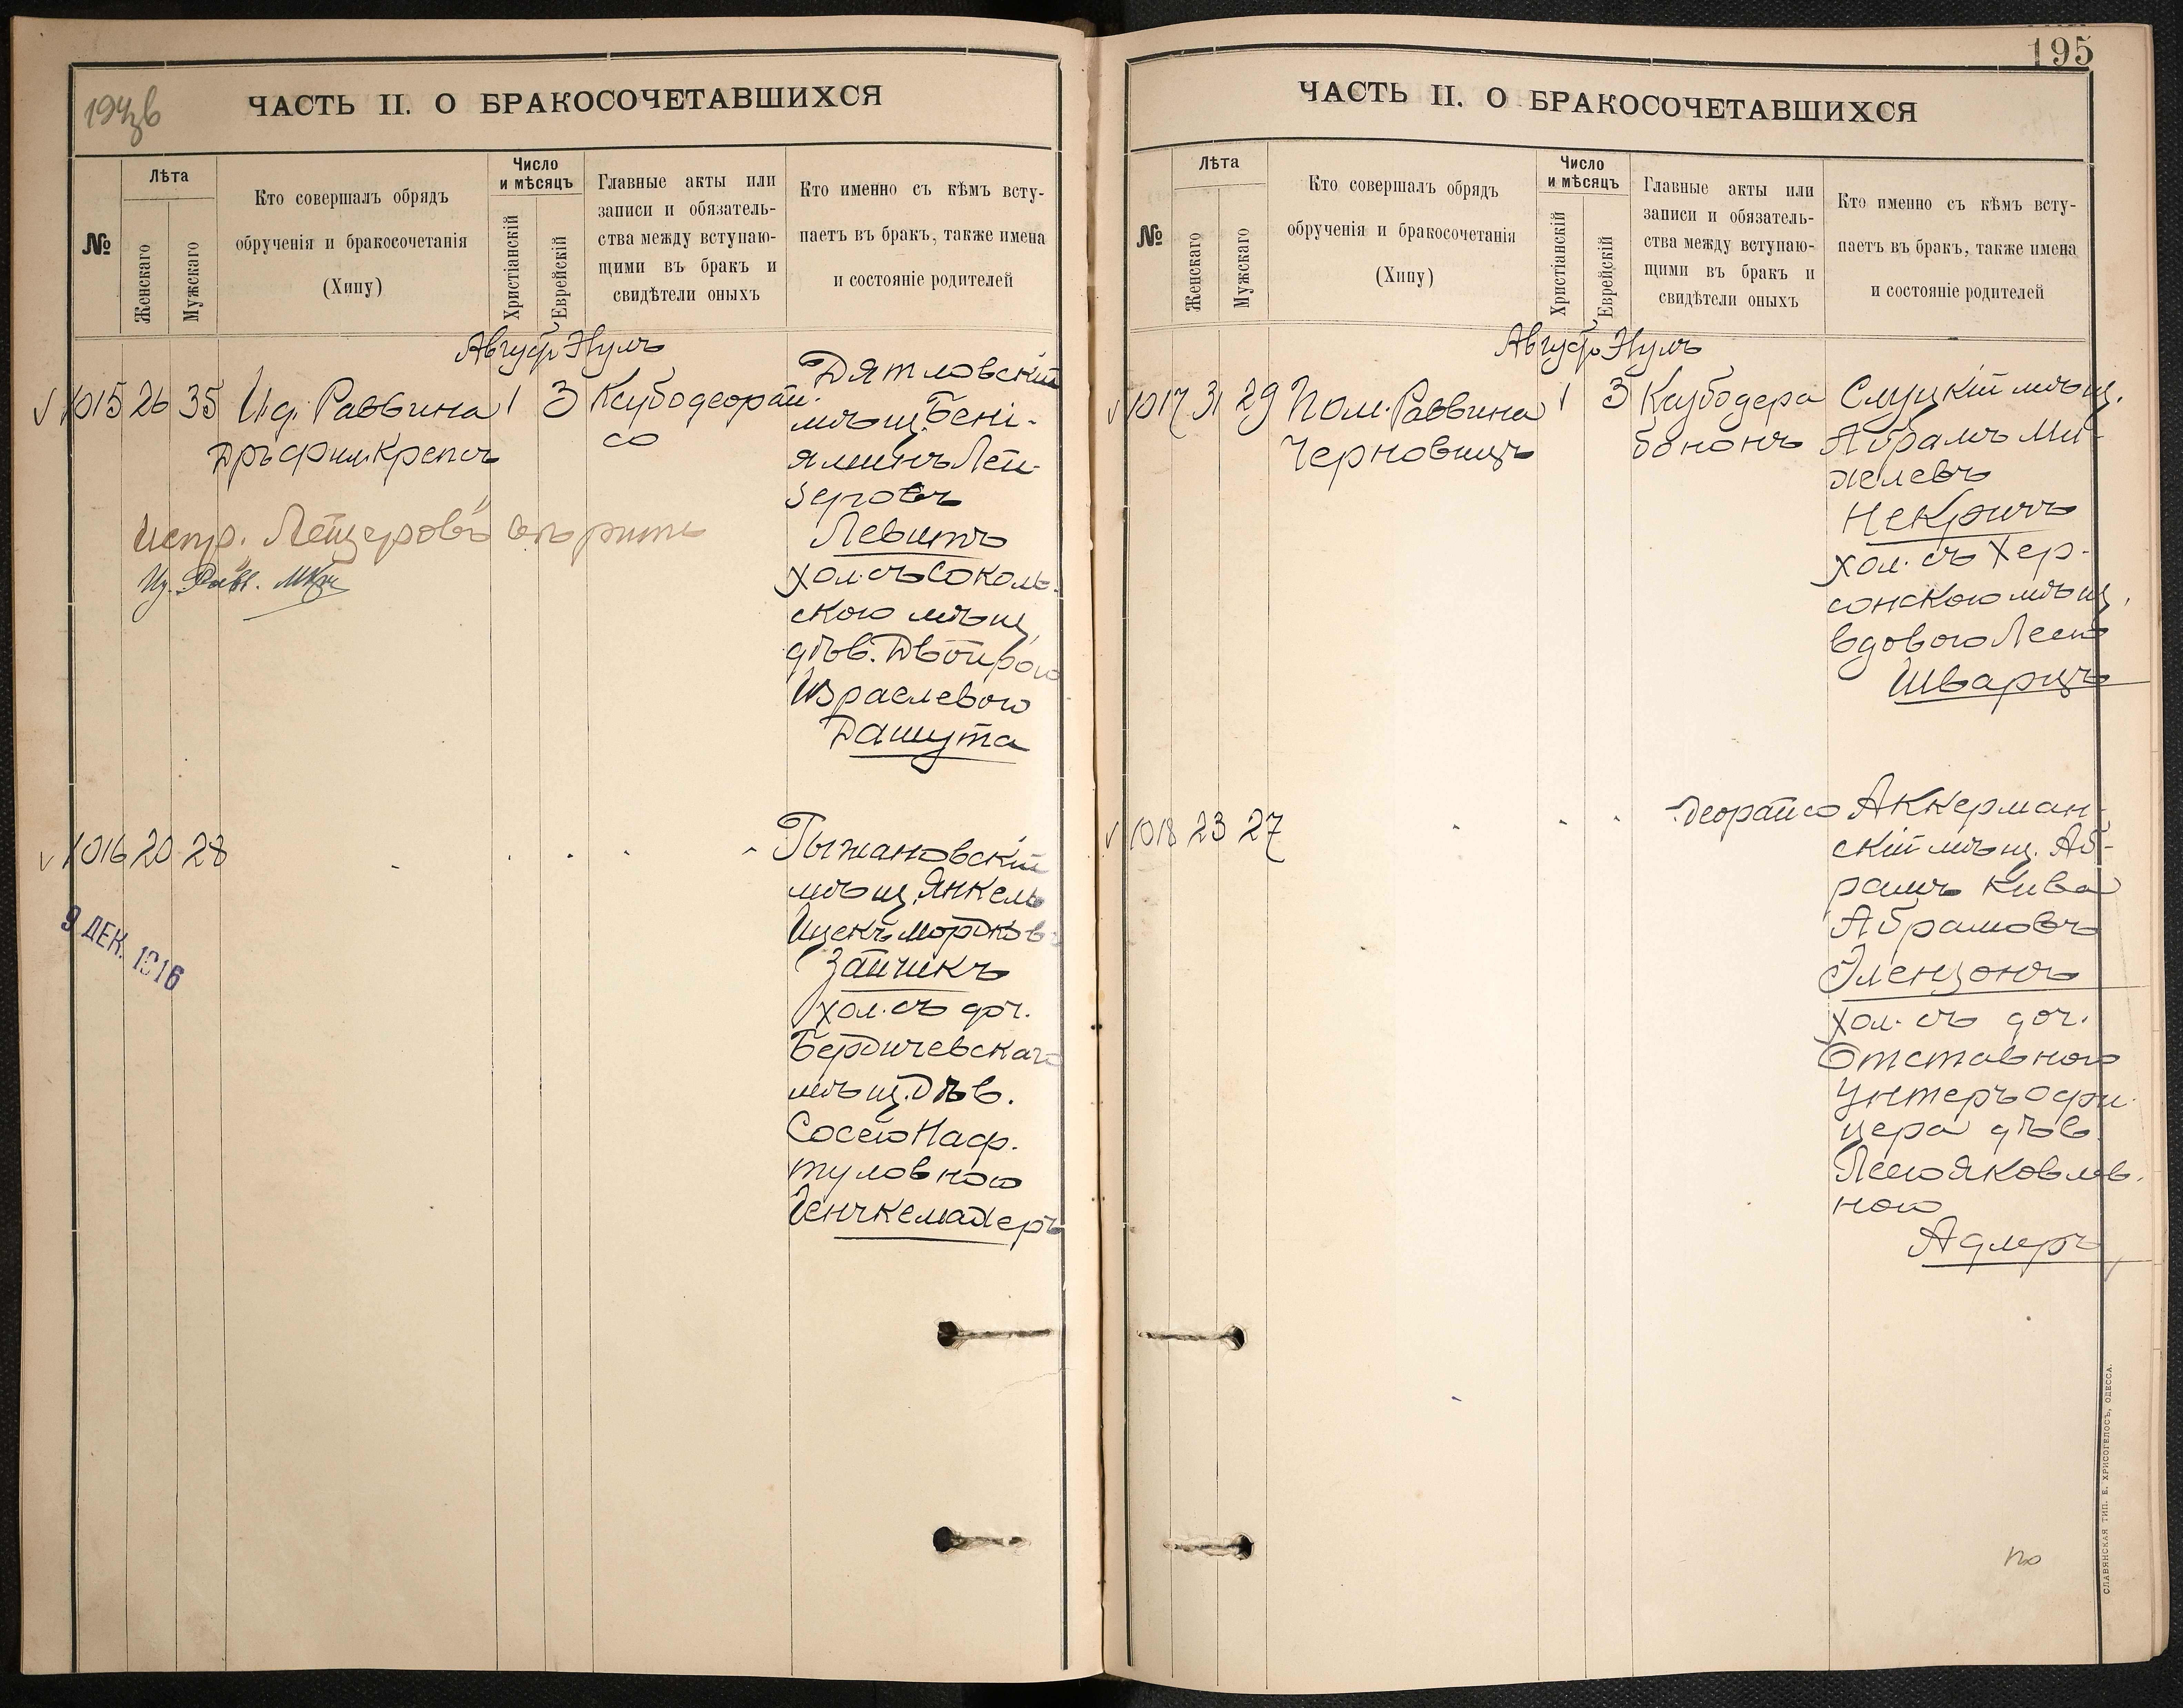 194об
ЧАСТЬ II. О БРАКОСОЧЕТАВШИХСЯ
№
Лѣта
Женскаго
Мужскаго
Кто совершалъ обрядъ
обрученія и бракосочетанія
(Хипу)
Число
и мѣсяцъ
Христіанскій
Еврейскій
Главные акты или
записи и обязатель-
ства между вступаю-
щими въ бракъ и
свидѣтели оныхъ
Кто именно съ кѣмъ всту-
паетъ въ бракъ, также имена
и состояніе родителей
Август
1015 26 35 Ид. Раввина 1 3 Ксубодеорай-
со
Дръ фил. Крепсъ
Дятловскій
мѣщ. Бені-
яминъ Лей-
зеровъ
Левитъ
хол. съ Соколь-
скою мѣщ.
дѣв. Двойрою
Израелевою
Дашута
испр. Лейзеровъ
Ид. Равв.
1016 20 28
Тыжановскій
мѣщ. Янкель
Ицекъ Мордков
Зайчикъ
хол. съ доч.
Бердичевскаго
мѣщ. дѣв.
Сосею Наф-
туловною
9 ДЕК. 1916
195
ЧАСТЬ II. О БРАКОСОЧЕТАВШИХСЯ
№
Лѣта
Женскаго
Мужскаго
Кто совершалъ обрядъ
обрученія и бракосочетанія
(Хипу)
Число
и мѣсяцъ
Христіанскій
Еврейскій
Главные акты или
записи и обязатель-
ства между вступаю-
щими въ бракъ и
свидѣтели оныхъ
Кто именно съ кѣмъ всту-
паетъ въ бракъ, также имена
и состояніе родителей
Август
1017 31 29 Пом. Раввина 1 3 Ксубодера
Черновицъ
бононъ
Слуцкій мѣщ.
Абрамъ Ми-
хелевъ
Некричъ
хол. съ Хер-
сонскою мѣщ.
вдовою Леею
Шварцъ
1018 23 27
деорайсо
Аккерман-
скій мѣщ. Аб-
рамъ Кива
Абрамовъ
Эленцонъ
хол. съ доч.
Отставного
унтеръ офи-
цера дѣв.
Леею Яковлев-
ною
Адлеръ
СЛАВЯНСКАЯ ТИП. Е. ХРИСОГЕЛОСЪ, ОДЕССА.